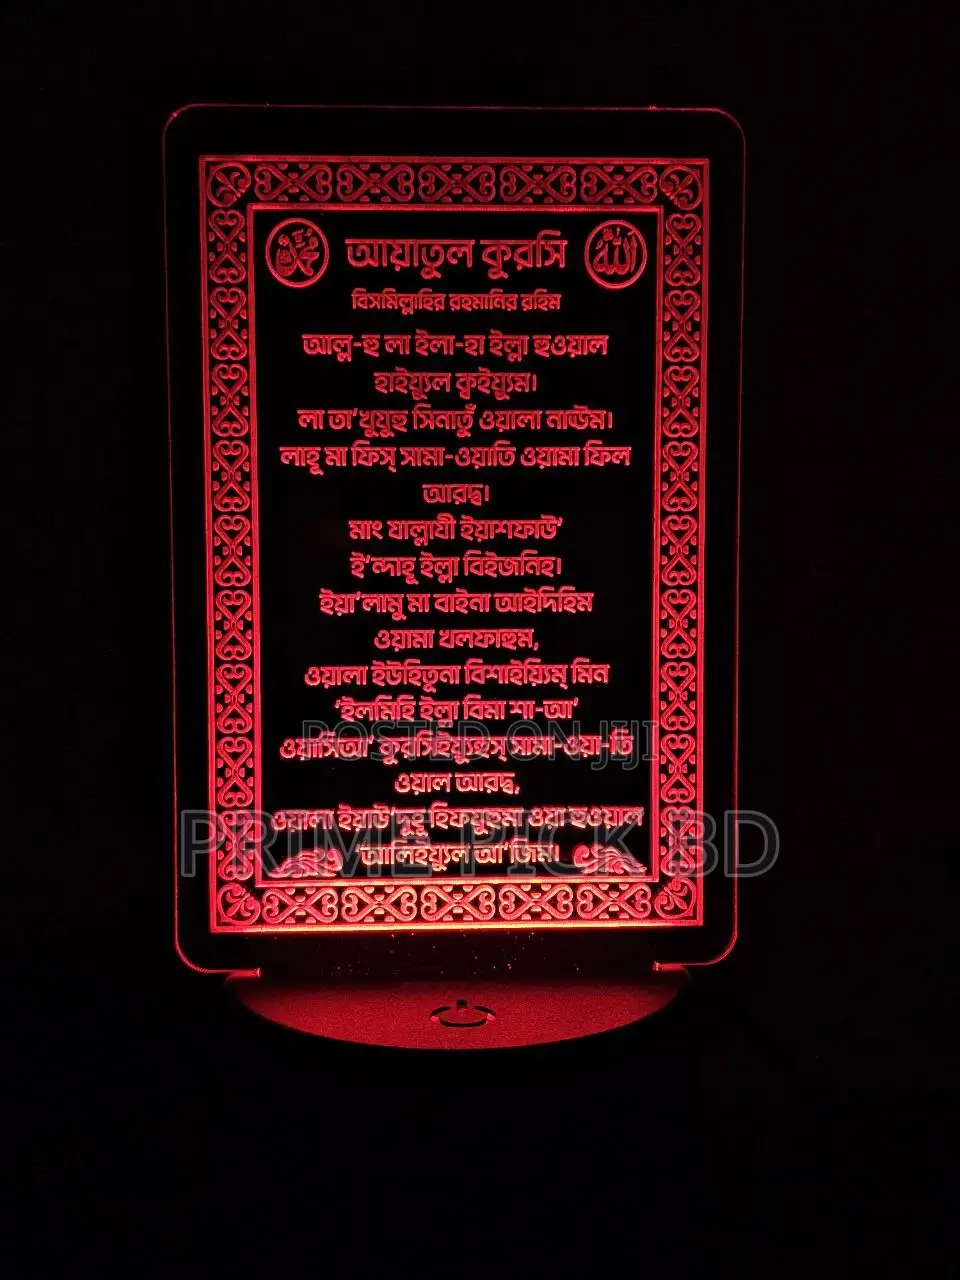 محمد
আয়াতুল কুরসি
الله
বিসমিল্লাহির রহমানির রহিম
আল্ল-হু লা ইলা-হা ইল্লা হুওয়াল
হাইয়্যুল ক্বইয়্যুম।
লা তা'খুযুহু সিনাতুঁ ওয়ালা নাঊম।
লাহূ মা ফিস্ সামা-ওয়াতি ওয়ামা ফিল
আরদ্ব।
মাং যাল্লাযী ইয়াশফাউ'
ই'ন্দাহূ ইল্লা বিইজনিহ।
ইয়া'লামু মা বাইনা আইদিহিম
ওয়ামা খলফাহুম,
ওয়ালা ইউহিতূনা বিশাইয়্যিম্ মিন
'ইলমিহি ইল্লা বিমা শা-আ'
POSTED ON JIJI
ওয়াসিআ' কুরসিইয়্যুহুস্ সামা-ওয়া-তি
ওয়াল আরদ্ব,
ওয়ালা ইয়াউ'দুহূ হিফযুহুমা ওয়া হুওয়াল
PRIME PICK BD
'আলিইয়্যুল আ'জিম।